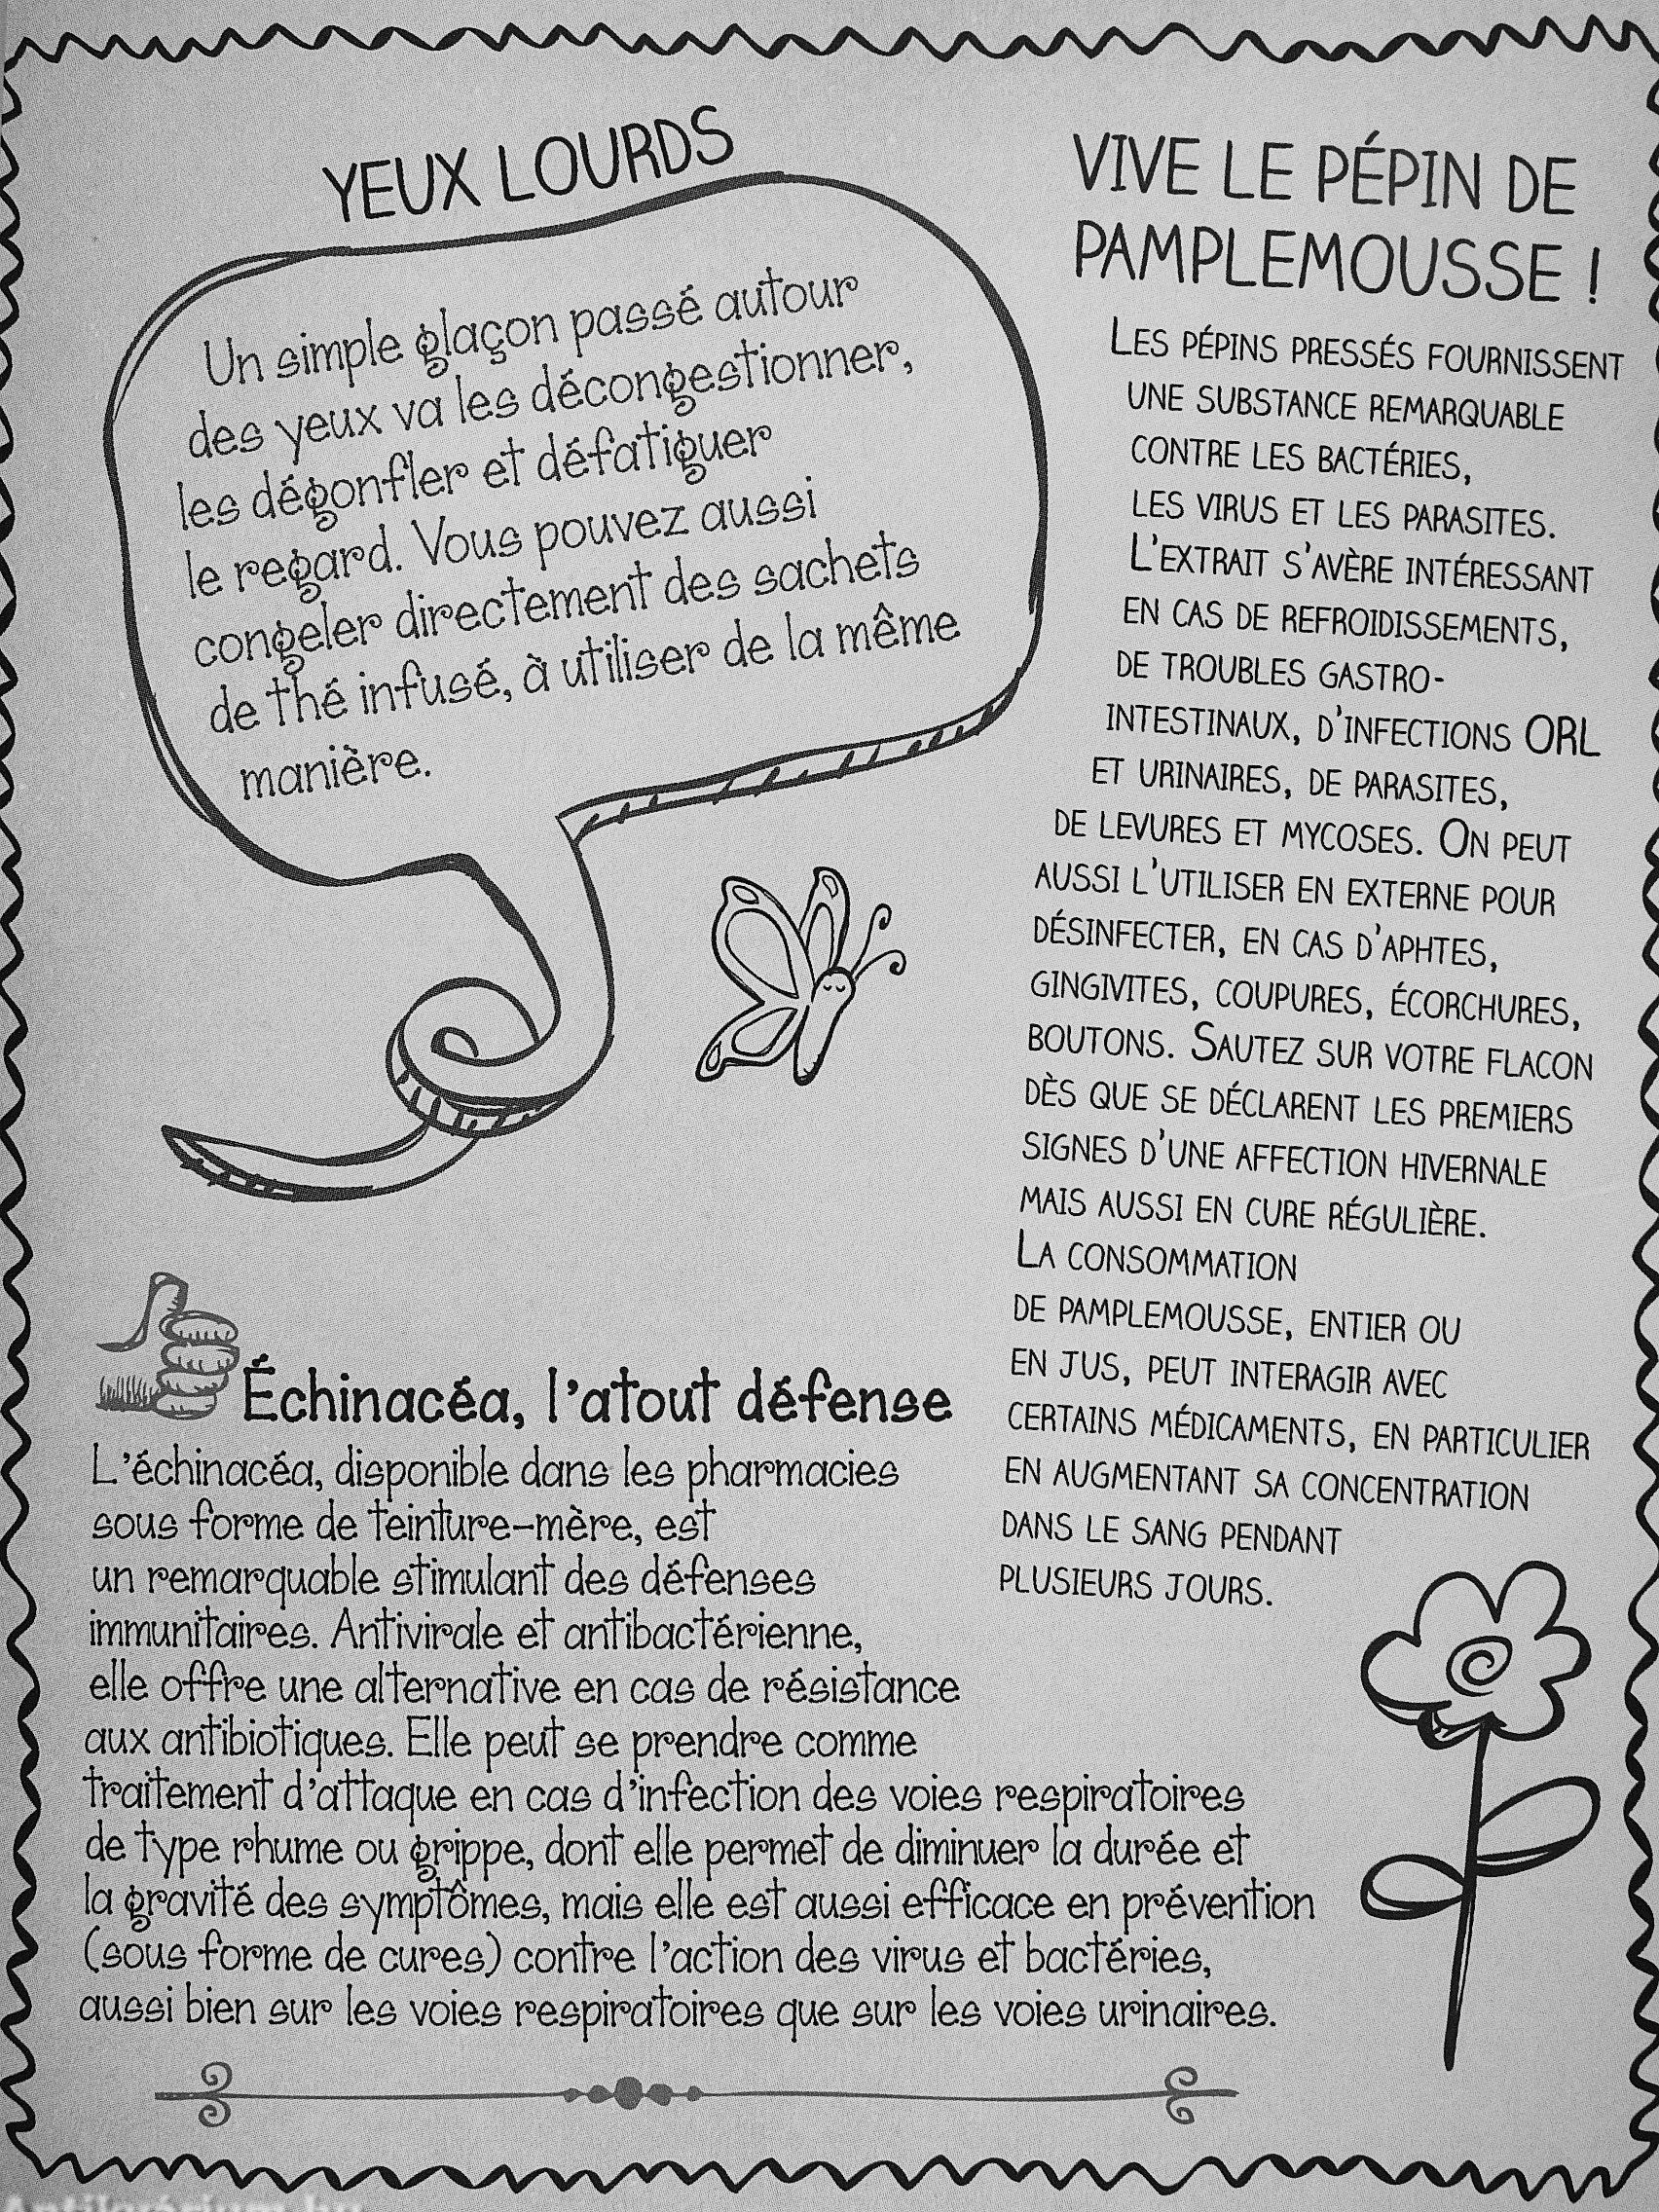 YEUX LOURDS
Un simple glaçon passé autour
des yeux va les décongestionner,
les dégonfler et défatiguer
le regard. Vous pouvez aussi
congeler directement des sachets
de thé infusé, à utiliser de la même
manière.
VIVE LE PÉPIN DE
PAMPLEMOUSSE !
LES PÉPINS PRESSÉS FOURNISSENT
UNE SUBSTANCE REMARQUABLE
CONTRE LES BACTÉRIES,
LES VIRUS ET LES PARASITES.
L'EXTRAIT S'AVÈRE INTÉRESSANT
EN CAS DE REFROIDISSEMENTS,
DE TROUBLES GASTRO-
INTESTINAUX, D'INFECTIONS ORL
ET URINAIRES, DE PARASITES,
DE LEVURES ET MYCOSES. ON PEUT
AUSSI L'UTILISER EN EXTERNE POUR
DÉSINFECTER, EN CAS D'APHTES,
GINGIVITES, COUPURES, ÉCORCHURES,
BOUTONS. SAUTEZ SUR VOTRE FLACON
DÈS QUE SE DÉCLARENT LES PREMIERS
SIGNES D'UNE AFFECTION HIVERNALE
MAIS AUSSI EN CURE RÉGULIÈRE.
LA CONSOMMATION
DE PAMPLEMOUSSE, ENTIER OU
EN JUS, PEUT INTERAGIR AVEC
CERTAINS MÉDICAMENTS, EN PARTICULIER
EN AUGMENTANT SA CONCENTRATION
DANS LE SANG PENDANT
PLUSIEURS JOURS.
Échinacéa, l'atout défense
L'échinacéa, disponible dans les pharmacies
sous forme de teinture-mère, est
un remarquable stimulant des défenses
immunitaires. Antivirale et antibactérienne,
elle offre une alternative en cas de résistance
aux antibiotiques. Elle peut se prendre comme
traitement d'attaque en cas d'infection des voies respiratoires
de type rhume ou grippe, dont elle permet de diminuer la durée et
la gravité des symptômes, mais elle est aussi efficace en prévention
(sous forme de cures) contre l'action des virus et bactéries,
aussi bien sur les voies respiratoires que sur les voies urinaires.